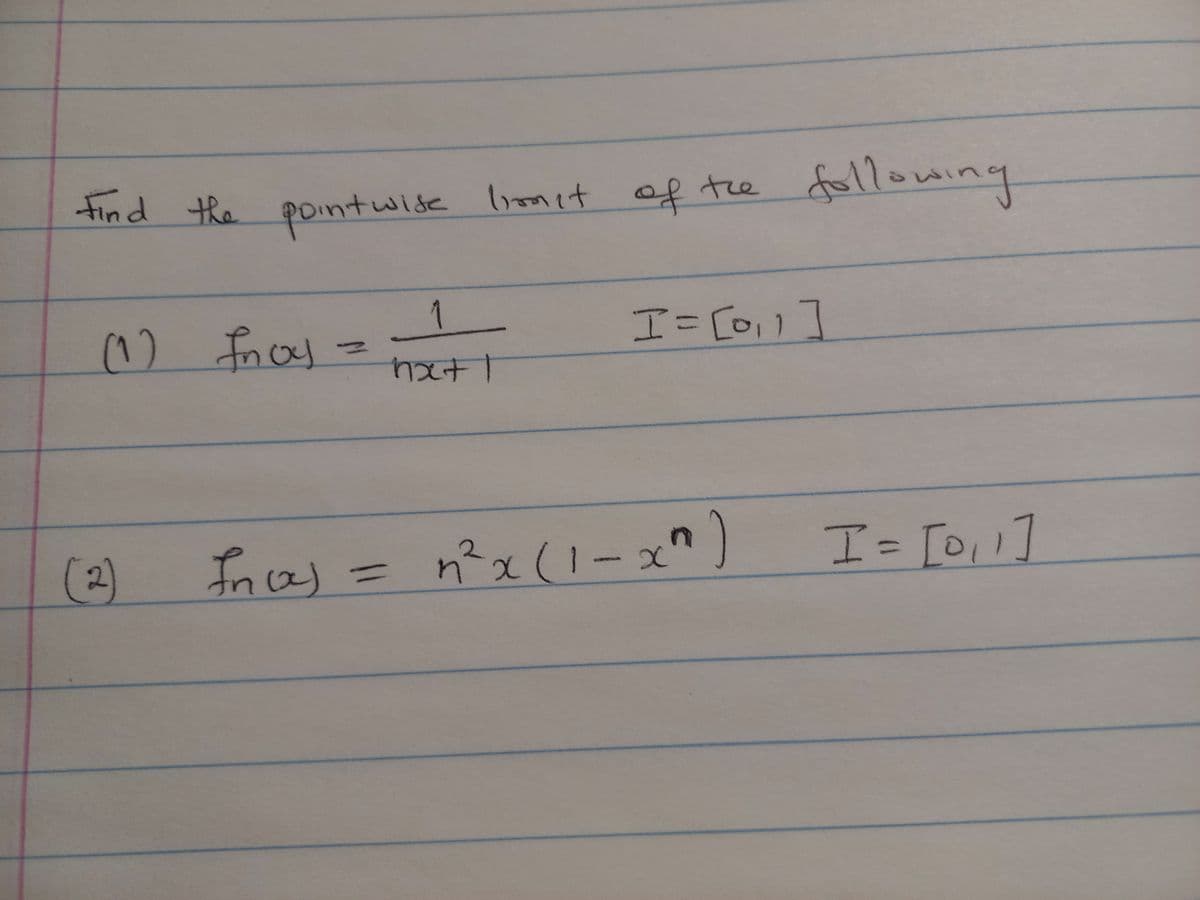 Find the pointwise limit of the following
(1) fn(x) = 1/(nx+1) I=[0,1]
(2) fn(x) = n²x(1-xⁿ) I=[0,1]